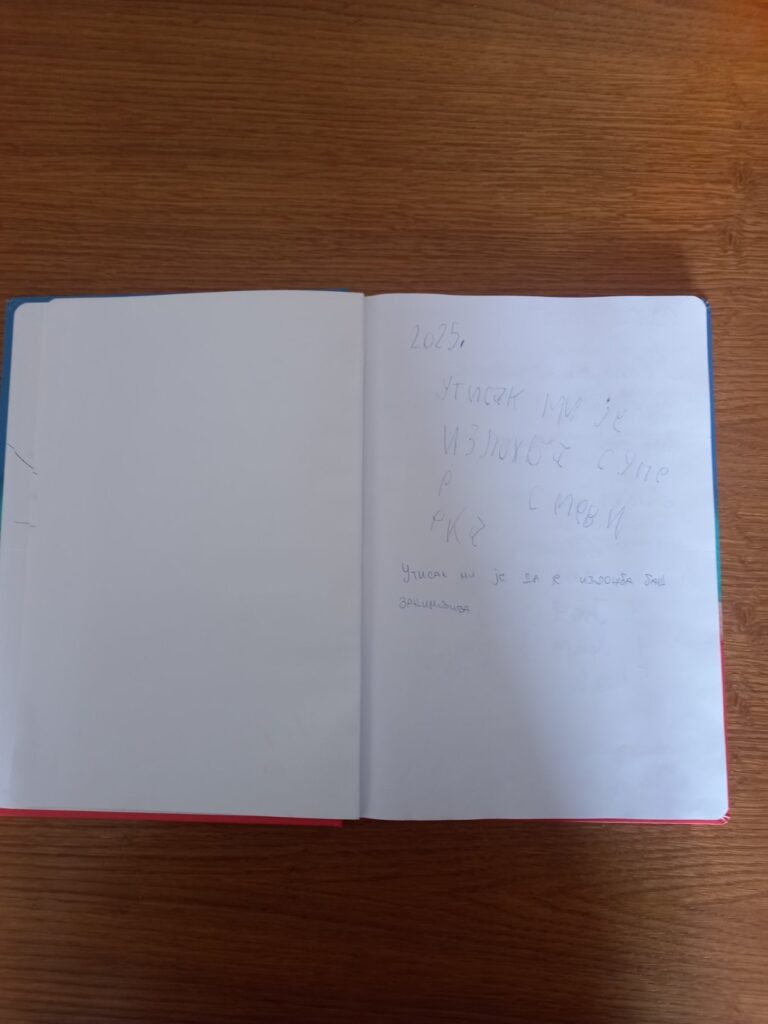 2025.
Утисак ми је
изложба супе
р
рка
Утисак ми је да је изложба баш
занимљива